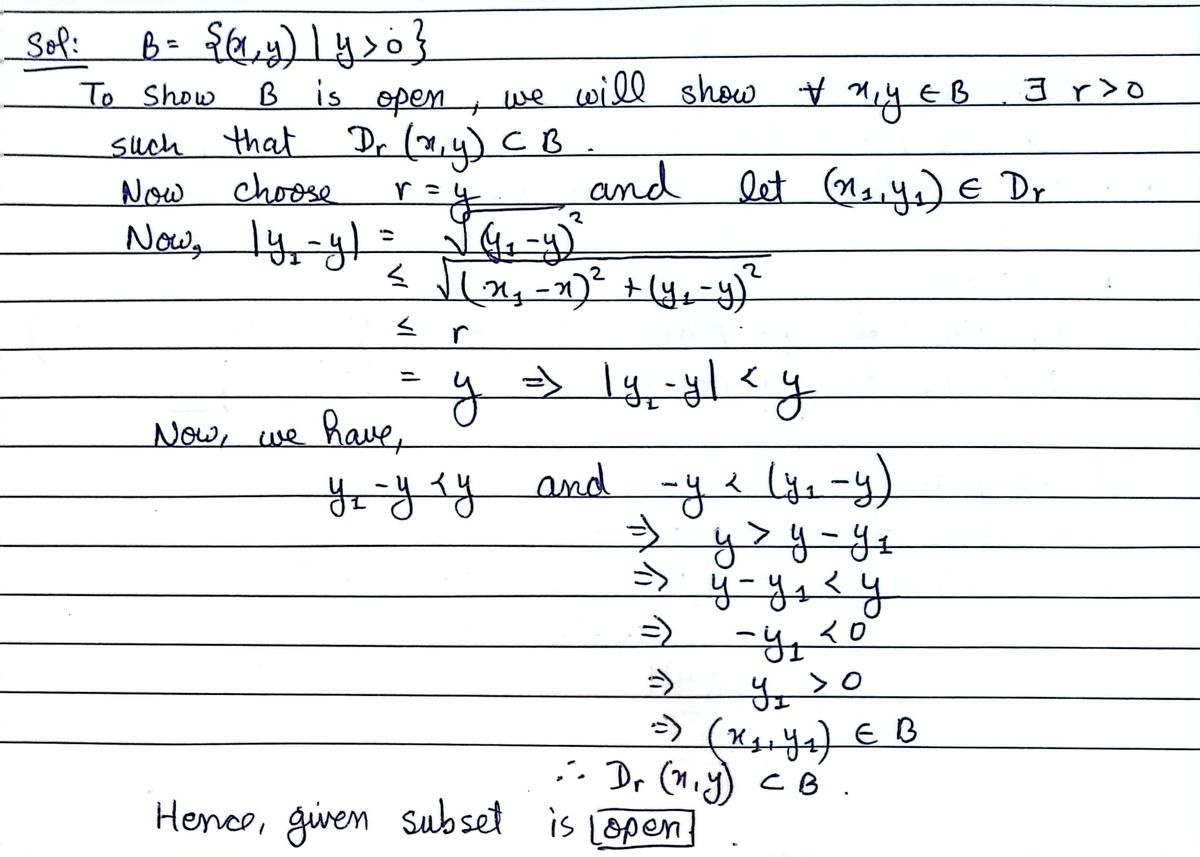 Sol: B = {(x,y) | y > 0}
To show B is open, we will show ∀ x,y ∈ B . ∃ r > 0
such that Dr (x,y) ⊂ B .
Now choose r = y and let (x₁,y₁) ∈ Dr
Now, |y₁ - y| = √(y₁ - y)²
≤ √(x₁ - x)² + (y₁ - y)²
≤ r
= y ⇒ |y₁ - y| < y
Now, we have,
y₁ - y < y and -y < (y₁ - y)
⇒ y > y - y₁
⇒ y - y₁ < y
⇒ -y₁ < 0
⇒ y₁ > 0
⇒ (x₁, y₁) ∈ B
∴ Dr (x,y) ⊂ B .
Hence, given subset is open .